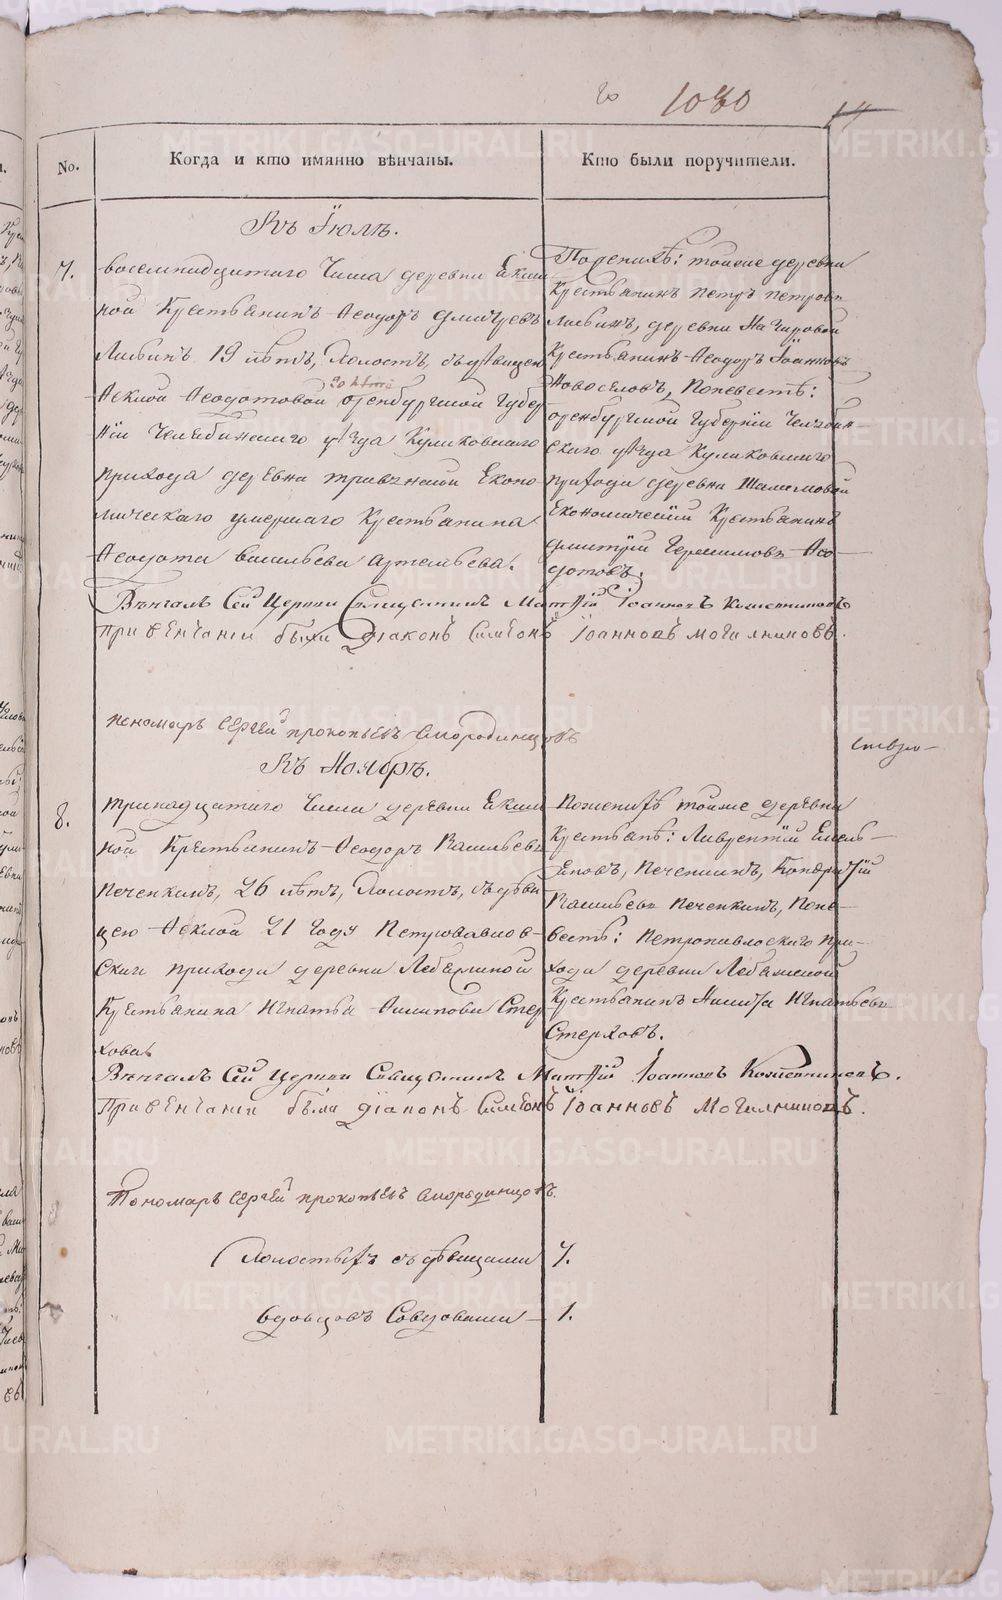 1030
14
No.
Когда и кто имянно вѣнчаны.
Кто были поручители.
Въ Іюлѣ.
7.
восемнадцатаго Числа деревни Екши
ной Крестьянинъ Ѳеодоръ Дмитревъ
19 лѣтъ, Холостъ, съ дѣвицею
20 лѣтъ
Ѳеклой Ѳеодотовой Оренбургской Губер
ніи Челябинскаго уѣзда Куликовскаго
прихода деревни Еконо
мическаго умершаго Крестьянина
Ѳеодота Васильева Артемьева.
По женихѣ: тойже деревни
Крестьянинъ Петръ Петровъ
деревни
Крестьянинъ Ѳеодоръ Іоанновъ
Новоселовъ, По невестѣ:
Оренбургской Губерніи Челябин-
скаго уѣзда Куликовскаго
прихода деревни
Економическій Крестьянинъ
Дмитрій Герасимовъ Ѳео-
дотовъ.
Вѣнчалъ Сей Церкви Священникъ Матѳій Іоанновъ
При венчаніи были Діаконъ Симеонъ Іоанновъ Могилниковъ.
пономарь Сергей прокопьевъ Смородинцовъ
Въ Ноябрѣ.
8.
тринадцатаго Числа деревни Екши
ной Крестьянинъ Ѳеодоръ Васильевъ
Печенкинъ, 26 лѣтъ, Холостъ, съ дѣви
цею Ѳеклой 21 году Петропавлов-
скаго прихода деревни
Крестьянина Игнатья Филипова Стер
хова
По женихѣ тойже деревни
Крестьянѣ: Лаврентій Емель-
яновъ, Печенкинъ, Кондратій
Васильевъ Печенкинъ, По не-
вестѣ: Петропавловскаго при-
хода деревни
Крестьянинъ Никита Игнатьевъ
Стерховъ.
Вѣнчалъ Сей Церкви Священникъ Матѳій Іоанновъ
При венчаніи были діаконъ Симеонъ Іоанновъ Могилниковъ.
Пономарь Сергей прокопьевъ Смородинцовъ.
Холостыхъ съ дѣвицами 7.
вдовцовъ Совдовами — 1.
METRIKI.GASO-URAL.RU